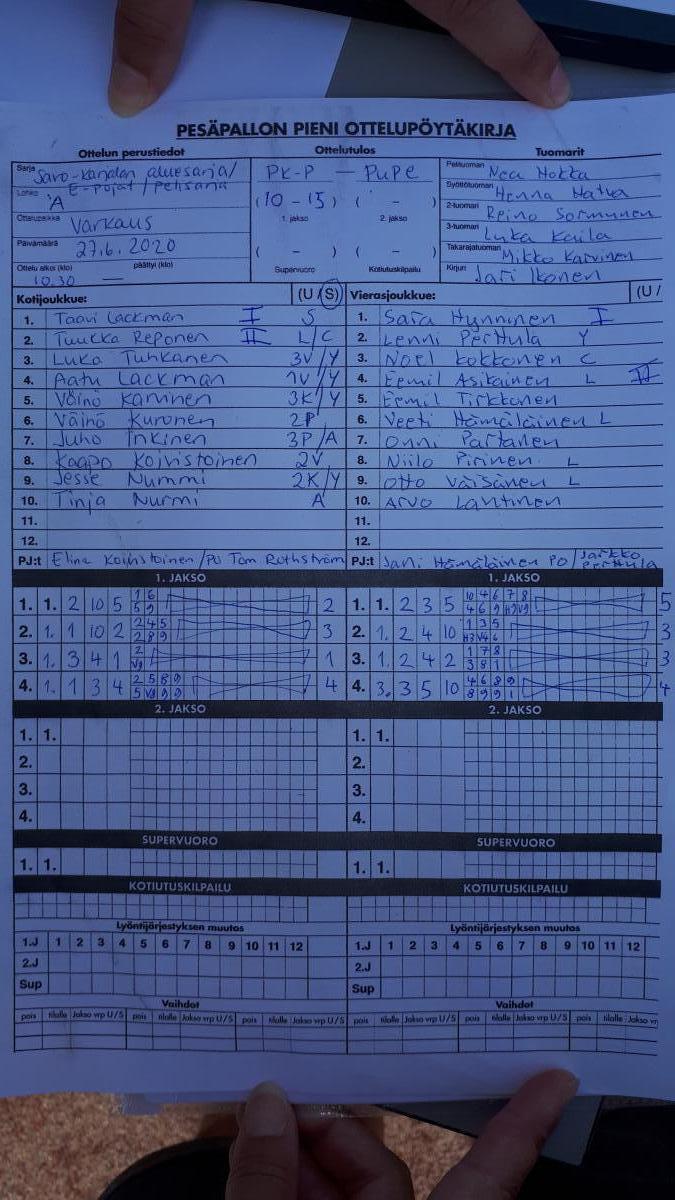 PESÄPALLON PIENI OTTELUPÖYTÄKIRJA
Ottelun perustiedot
Sarja Savo-Karjalan aluesarja/
Lohko E-pojat / pelisarja
A
Ottelupaikka Varkaus
Päivämäärä 27.6.2020
Ottelu alkoi (klo) päättyi (klo)
10.30 —
Ottelutulos
PK-P — PuPe
(10 - 15) ( - )
1. jakso 2. jakso
( - ) ( - )
Supervuoro Kotiutuskilpailu
Tuomarit
Pelituomari Nea Hokka
Syöttötuomari Henna Hatva
2-tuomari Reino Sormunen
3-tuomari Luka Kaila
Takarajatuomari Mikko Karvinen
Kirjuri Jari Ikonen
Kotijoukkue: (U / S)
1. Taavi Lackman I S
2. Tuukka Reponen II L/C
3. Luka Tuhkanen 3V/Y
4. Aatu Lackman 1V/Y
5. Väinö Karvinen 3K/Y
6. Väinö Kuronen 2P
7. Juho Inkinen 3P/A
8. Kaapo Koivistoinen 2V
9. Jesse Nummi 2K/Y
10. Tinja Nurmi A
11.
12.
PJ:t Elina Koivistoinen / PU Tom Rothström
Vierasjoukkue: (U /
1. Sara Hynninen I
2. Lenni Perttula Y
3. Noel Kokkonen C
4. Eemil Asikainen L II
5. Eemil Tirkkonen
6. Veeti Hämäläinen L
7. Onni Partanen
8. Niilo Pirinen L
9. Otto Väisänen L
10. Arvo Lantinen
11.
12.
PJ:t Jani Hämäläinen PO / Jarkko Perttula
1. JAKSO 1. JAKSO
1. 1. 2 10 5 1 6 2
5 9
2. 1. 1 10 2 2 4 5 3
2 8 9
3. 1. 3 4 1 2 1
V9
4. 1. 1 3 4 2 5 8 9 4
5 V8 9 9
1. 1. 2 3 5 10 4 6 7 8 5
4 6 9
2. 1. 2 4 10 1 3 5 3
3. 1. 2 4 2 1 7 8 3
3 8 1
4. 3. 3 5 10 4 6 8 9 4
8 9 9 1
2. JAKSO 2. JAKSO
1. 1. 1. 1.
2. 2.
3. 3.
4. 4.
SUPERVUORO SUPERVUORO
1. 1. 1. 1.
KOTIUTUSKILPAILU KOTIUTUSKILPAILU
Lyöntijärjestyksen muutos Lyöntijärjestyksen muutos
1.J 1 2 3 4 5 6 7 8 9 10 11 12 1.J 1 2 3 4 5 6 7 8 9 10 11 12
2.J 2.J
Sup Sup
Vaihdot Vaihdot
pois tilalle Jakso vrp U/S pois tilalle Jakso vrp U/S pois tilalle Jakso vrp U/S pois tilalle Jakso vrp U/S pois tilalle Jakso vrp U/S pois tilalle Jakso vr